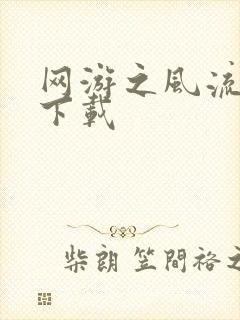 网游之风流
下载
柴朗 笠間裕之